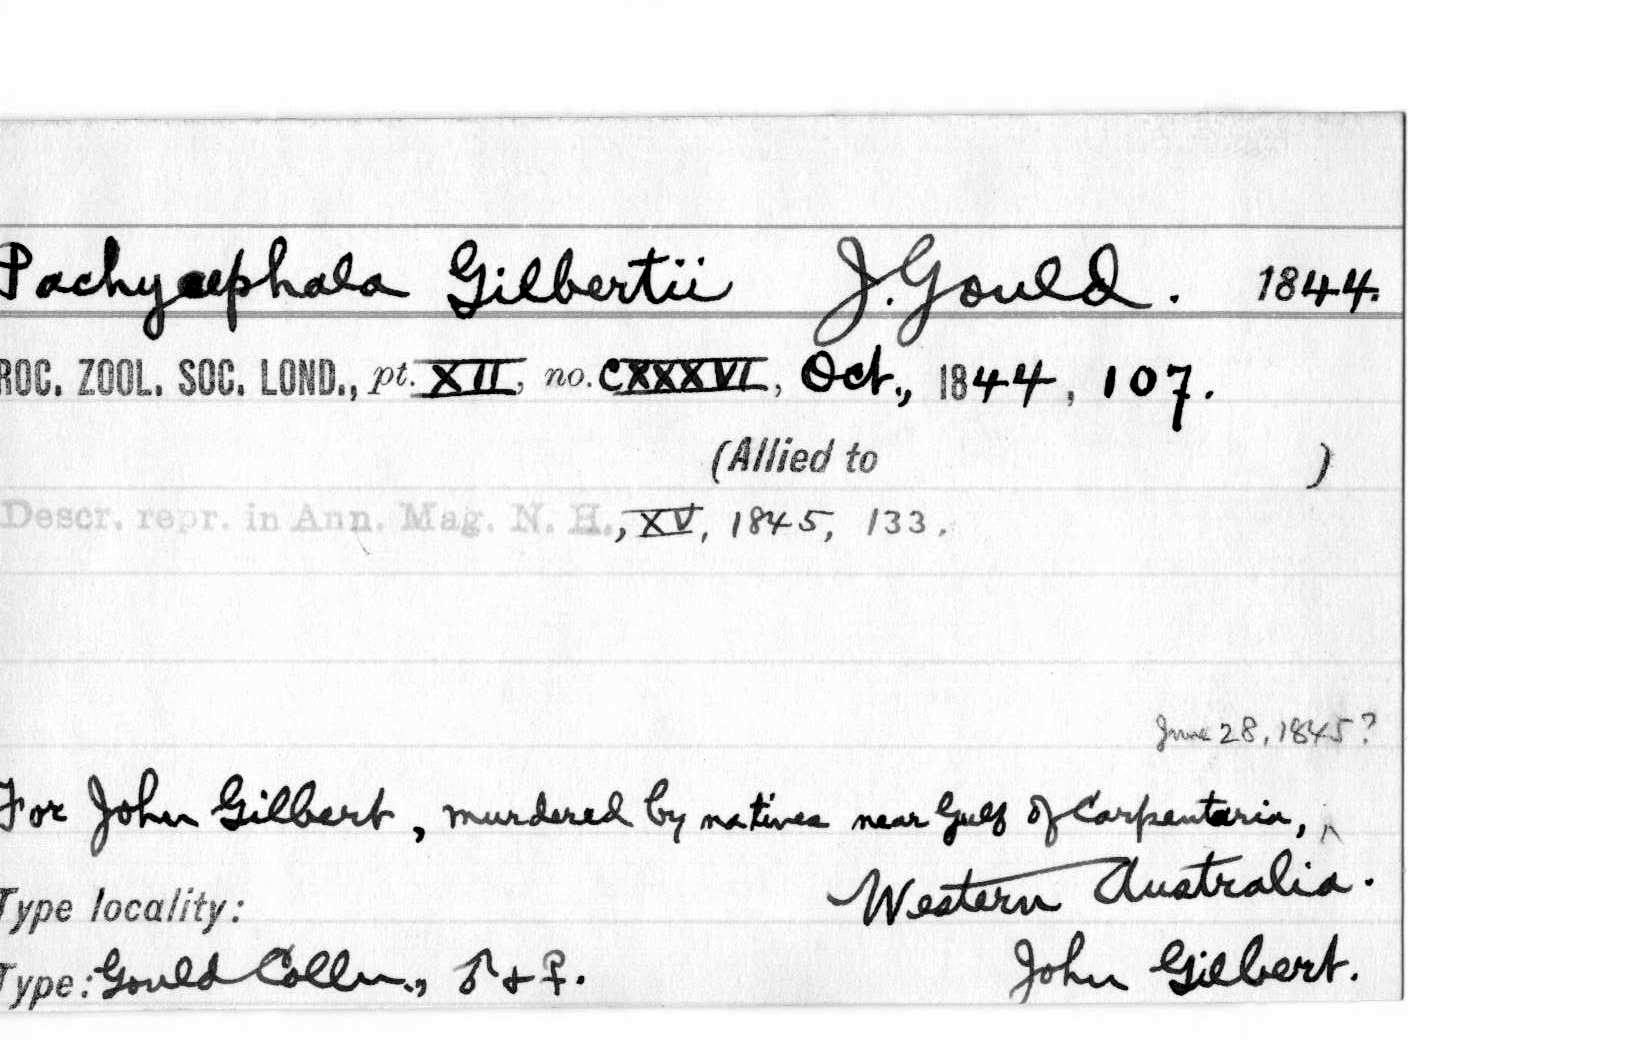 Pachycephala Gilbertii J. Gould. 1844.
ROC. ZOOL. SOC. LOND., pt. XII, no. CXXXVI, Oct., 1844, 107.
(Allied to )
Descr. repr. in Ann. Mag. N. H., XV, 1845, 133.
June 28, 1845?
For John Gilbert, murdered by natives near Gulf of Carpentaria, ^
Type locality: Western Australia.
Type: Gould Colln., ♂ + ♀. John Gilbert.